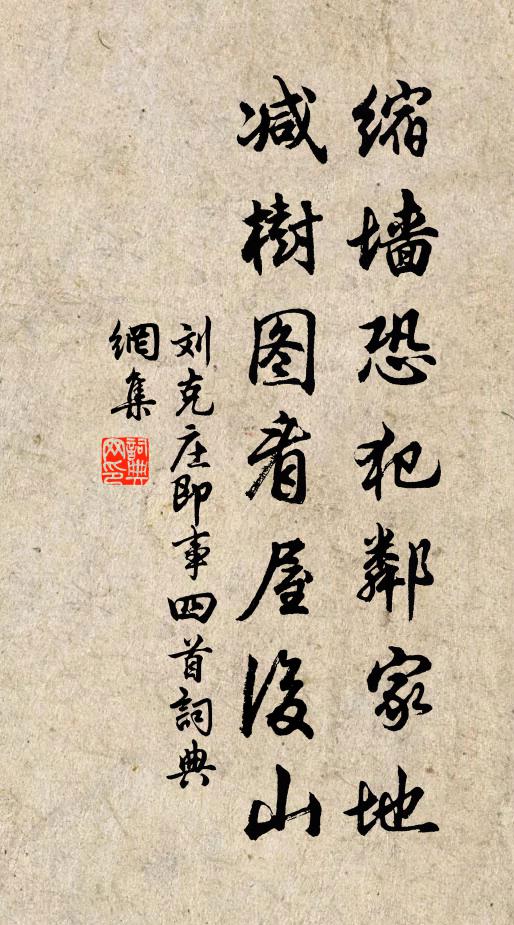 缩墙恐犯鄰家地
减樹图看屋後山
刘克庄即事四首詞典
網集
詞典网印